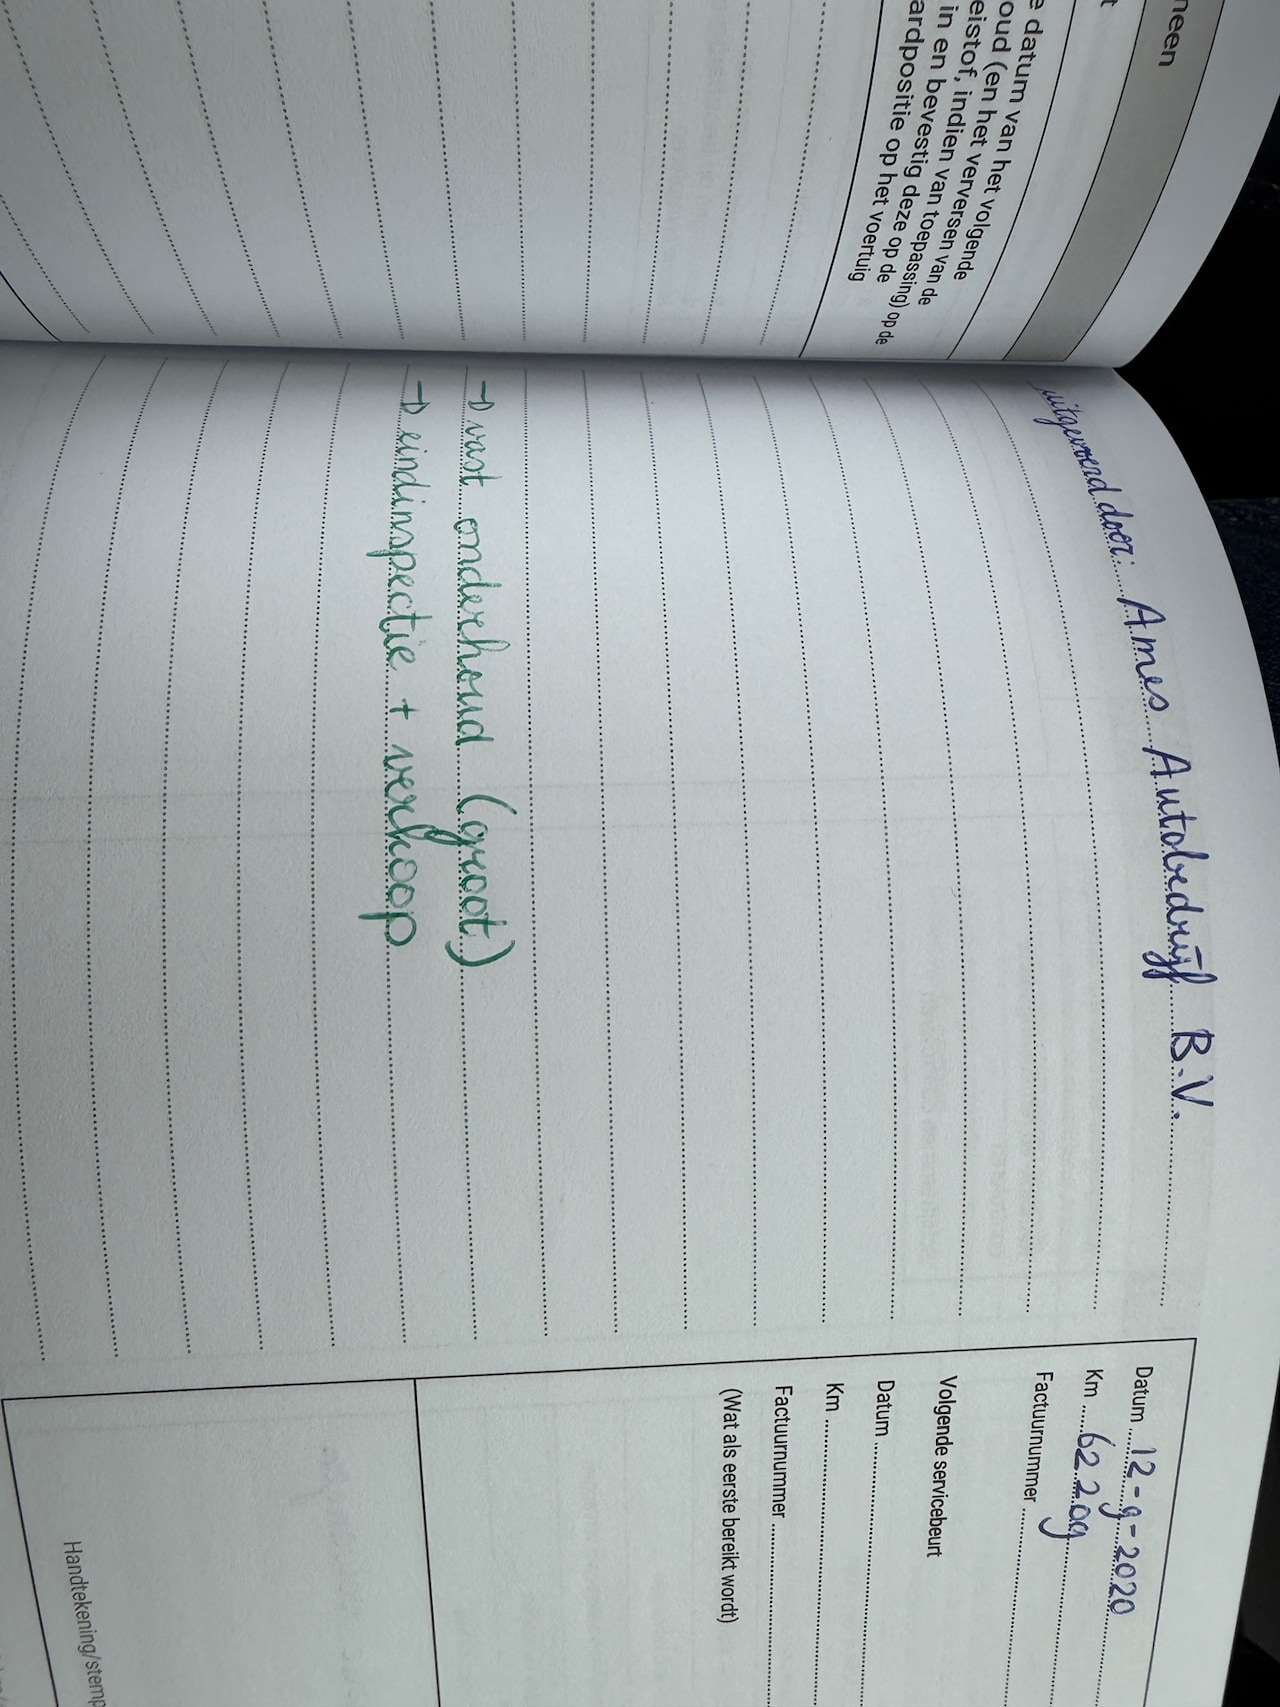 neen
t
e datum van het volgende
oud (en het verversen van de
eistof, indien van toepassing) op de
in en bevestig deze op de
ardpositie op het voertuig
uitgevoerd door: Ames Autobedrijf B.V.
→ vast onderhoud (groot)
→ eindinspectie + verkoop
Datum 12-9-2020
Km 62209
Factuurnummer
Volgende servicebeurt
Datum
Km
Factuurnummer
(Wat als eerste bereikt wordt)
Handtekening/stemp